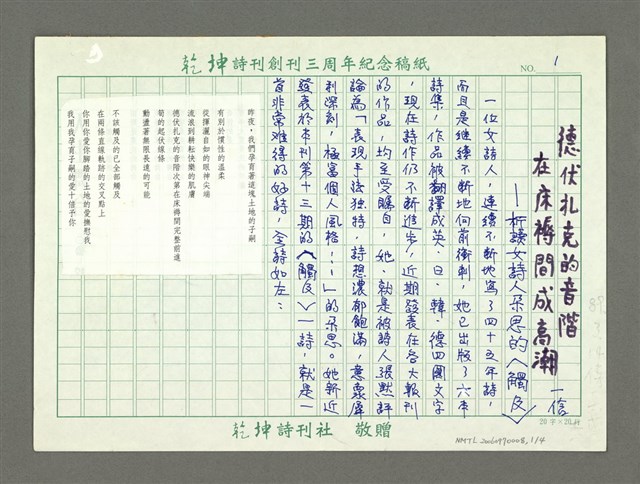 乾坤詩刊創刊三周年紀念稿紙
NO. 1
德伏扎克的音階
在床褥間成高潮
一信
—析讀女詩人朵思的〈觸及〉
一位女詩人，連續不斷地寫了四十五年詩，
而且是繼續不斷地向前衝刺，她已出版了六本
詩集，作品被翻譯成英、日、韓、德四國文字
，現在詩作仍不斷進步，近期發表在各大報刊
的作品，均至受矚目，她、就是被詩人張默評
論為「表現手法獨特，詩想濃郁飽滿，意象犀
利深刻，極富個人風格……」的朵思。她新近
發表於本刊第十三期的〈觸及〉一詩，就是一
首非常难得的好詩，全詩如左：
昨夜，我們孕育著這塊土地的子嗣
有別於慣性的溫柔
從揮灑自如的眼神尖端
流浪到耕耘快樂的肌膚
德伏扎克的音階次第在床褥間完整前進
筍的起伏線條
動盪著無限長達的可能
不該觸及的已全部觸及
在兩條直線軌跡的交叉點上
你用你愛你腳踏的土地的愛撫慰我
我用我孕育子嗣的愛十倍予你
乾坤詩刊社 敬贈
20字×20行
NMTL20060990008,1/4